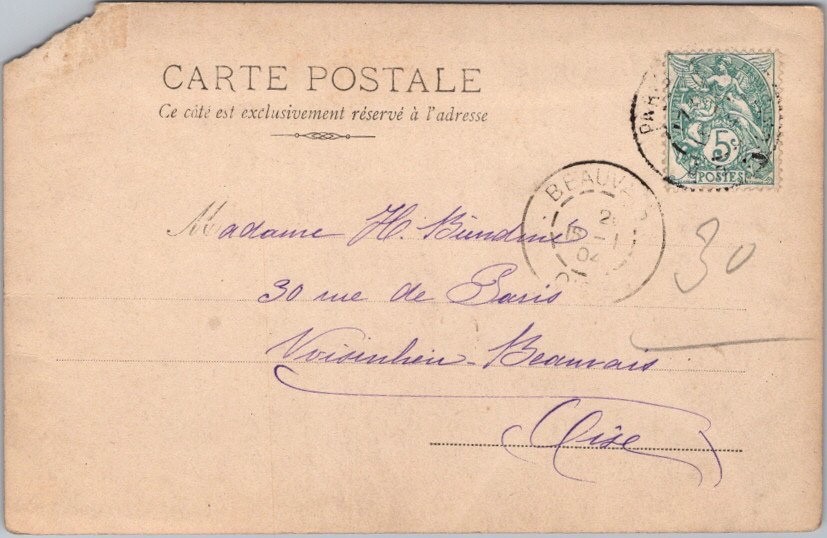 CARTE POSTALE
Ce côté est exclusivement réservé à l'adresse
5c
POSTES
BEAUVAIS
2
-1
04
Madame H.
30 rue de Paris
Voisinlieu-Beauvais
Oise
30